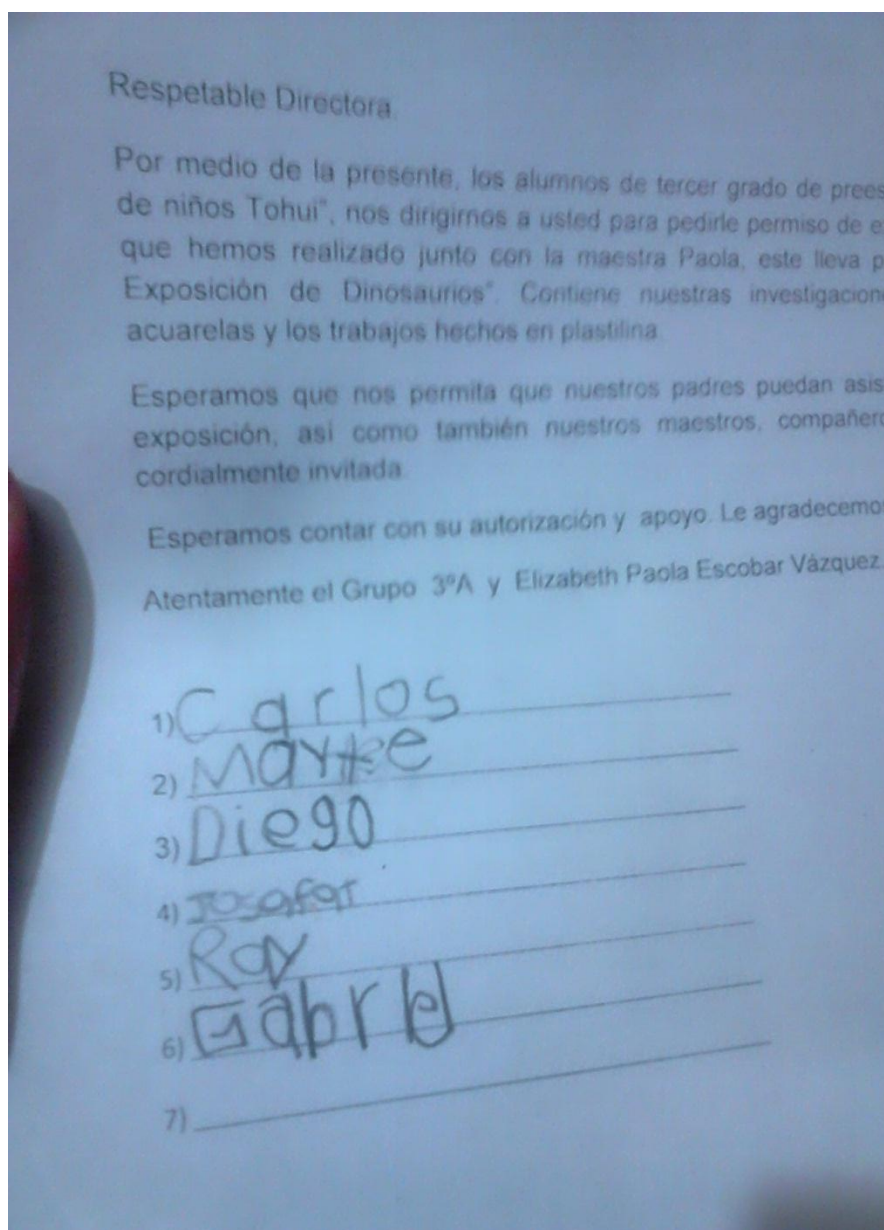 Respetable Directora.
Por medio de la presente, los alumnos de tercer grado de prees
de niños Tohui", nos dirigimos a usted para pedirle permiso de e
que hemos realizado junto con la maestra Paola, este lleva p
Exposición de Dinosaurios". Contiene nuestras investigacion
acuarelas y los trabajos hechos en plastilina.
Esperamos que nos permita que nuestros padres puedan asis
exposición, así como también nuestros maestros, compañer
cordialmente invitada.
Esperamos contar con su autorización y apoyo. Le agradecemo
Atentamente el Grupo 3ºA y Elizabeth Paola Escobar Vázquez.
1) Carlos
2)
3) Diego
4) Josafat
5) Roy
6) Gabriel
7)